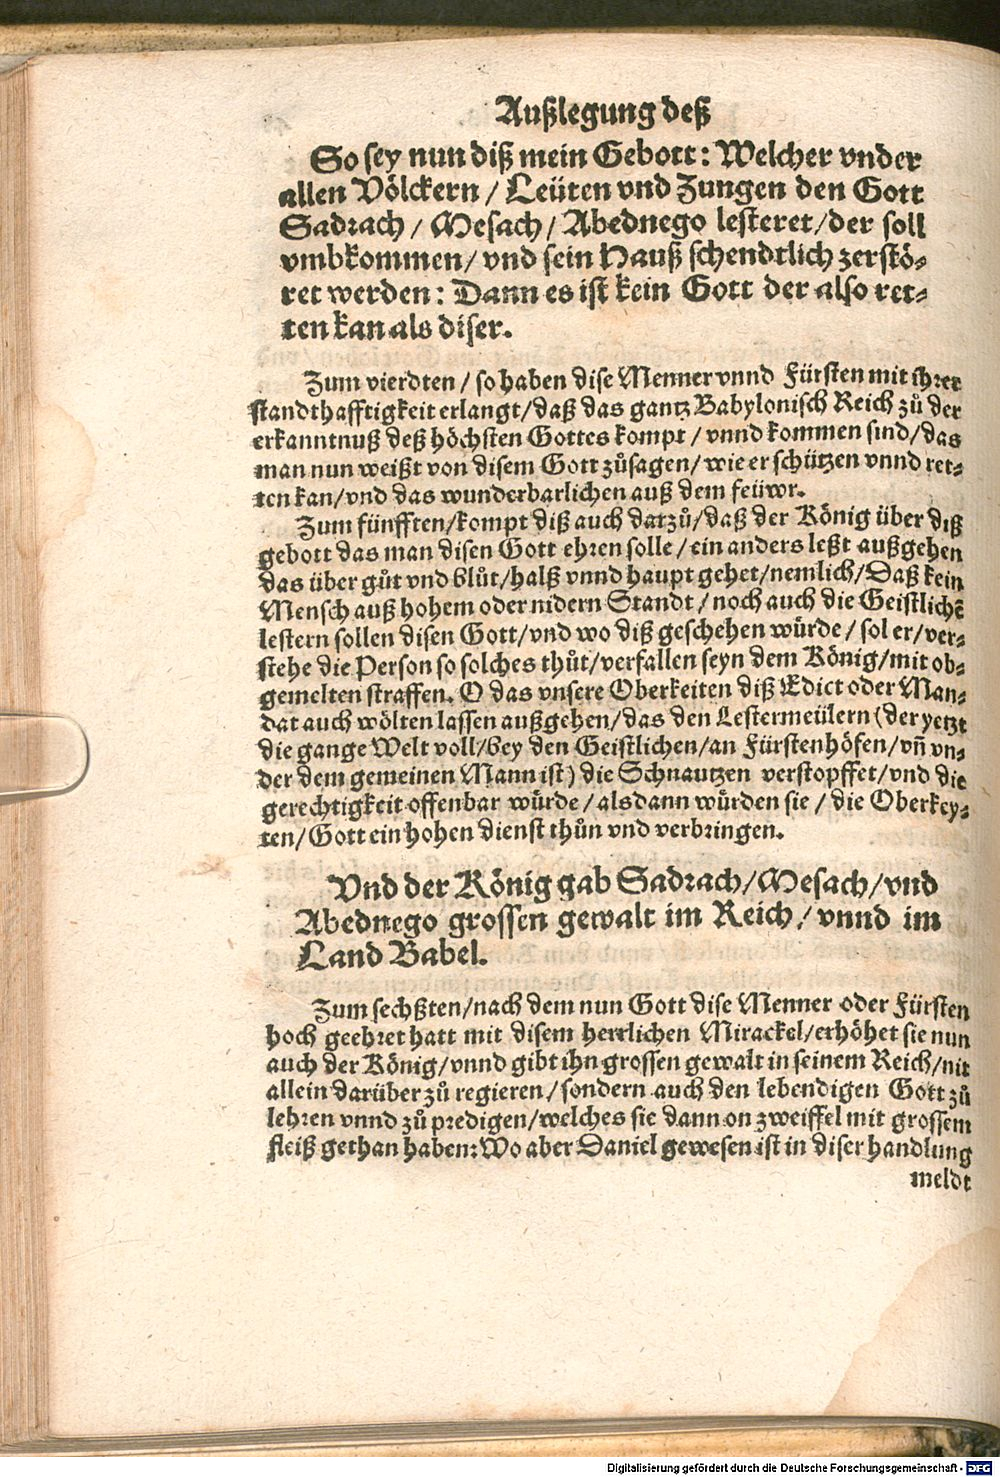 Außlegung deß
So sey nun diß mein Gebott: Welcher vnder
allen Völckern / Leüten vnd Zungen den Gott
Sadrach / Mesach / Abednego lesteret / der soll
vmbkommen / vnd sein Hauß schendtlich zerstö-
ret werden: Dann es ist kein Gott der also ret-
ten kan als diser.
Zum vierdten / so haben dise Menner vnnd Fürsten mit ihrer
standthafftigkeit erlangt / daß das gantz Babylonisch Reich zů der
erkanntnuß deß höchsten Gottes kompt / vnnd kommen sind / das
man nun weißt von disem Gott zůsagen / wie er schützen vnnd ret-
ten kan / vnd das wunderbarlichen auß dem feüwr.
Zum fünfften / kompt diß auch darzů / daß der König über diß
gebott das man disen Gott ehren solle / ein anders leßt außgehen
das über gůt vnd blůt / halß vnnd haupt gehet / nemlich / Daß kein
Mensch auß hohem oder nidern Standt / noch auch die Geistlichẽ
lestern sollen disen Gott / vnd wo diß geschehen würde / sol er / ver-
stehe die Person so solches thůt / verfallen seyn dem König / mit ob-
gemelten straffen. O das vnsere Oberkeiten diß Edict oder Man-
dat auch wölten lassen außgehen / das den Lestermeülern (der yetzt
die gange Welt voll / bey den Geistlichen / an Fürstenhöfen / vñ vn-
der dem gemeinen Mann ist) die Schnautzen verstopffet / vnd die
gerechtigkeit offenbar würde / alsdann würden sie / die Oberkey-
ten / Gott ein hohen dienst thůn vnd verbringen.
Vnd der König gab Sadrach / Mesach / vnd
Abednego grossen gewalt im Reich / vnnd im
Land Babel.
Zum sechßten / nach dem nun Gott dise Menner oder Fürsten
hoch geehret hatt mit disem herrlichen Mirackel / erhöhet sie nun
auch der König / vnnd gibt ihn grossen gewalt in seinem Reich / nit
allein darüber zů regieren / sondern auch den lebendigen Gott zů
lehren vnnd zů predigen / welches sie dann on zweiffel mit grossem
fleiß gethan haben: Wo aber Daniel gewesen ist in diser handlung
meldt
Digitalisierung gefördert durch die Deutsche Forschungsgemeinschaft - DFG